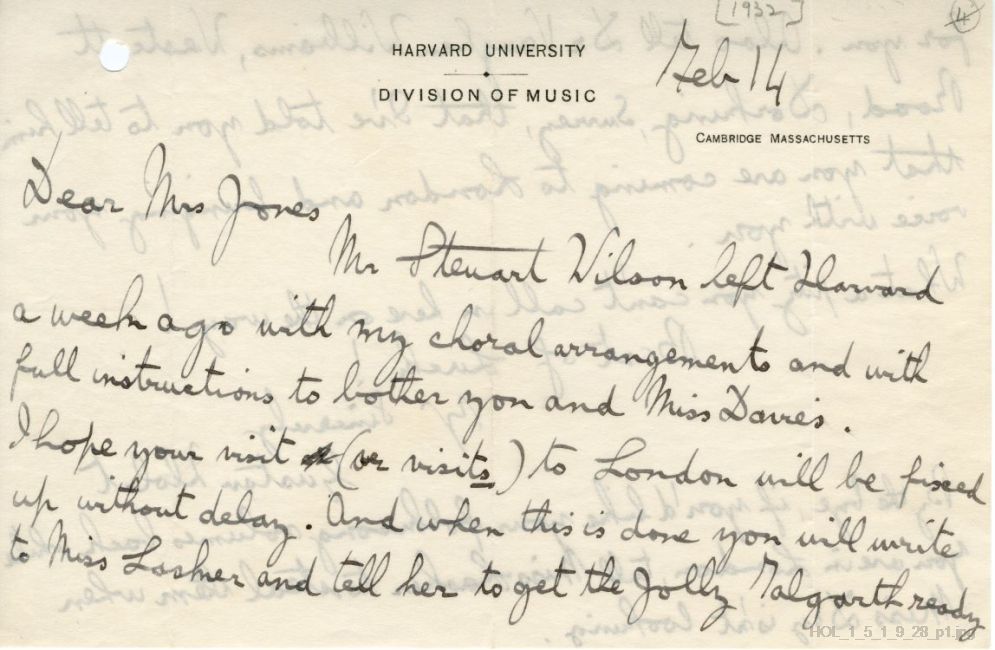 [1932]
4
HARVARD UNIVERSITY
DIVISION OF MUSIC
Feb 14
CAMBRIDGE MASSACHUSETTS
Dear Mrs Jones
Mr Steuart Wilson left Harvard
a week ago with my choral arrangements and with
full instructions to bother you and Miss Davies.
I hope your visit (or visits) to London will be fixed
up without delay. And when this is done you will write
to Miss Lasker and tell her to get the Jolly Talgarth ready
HOL_1_5_1_9_28_p1.jpg